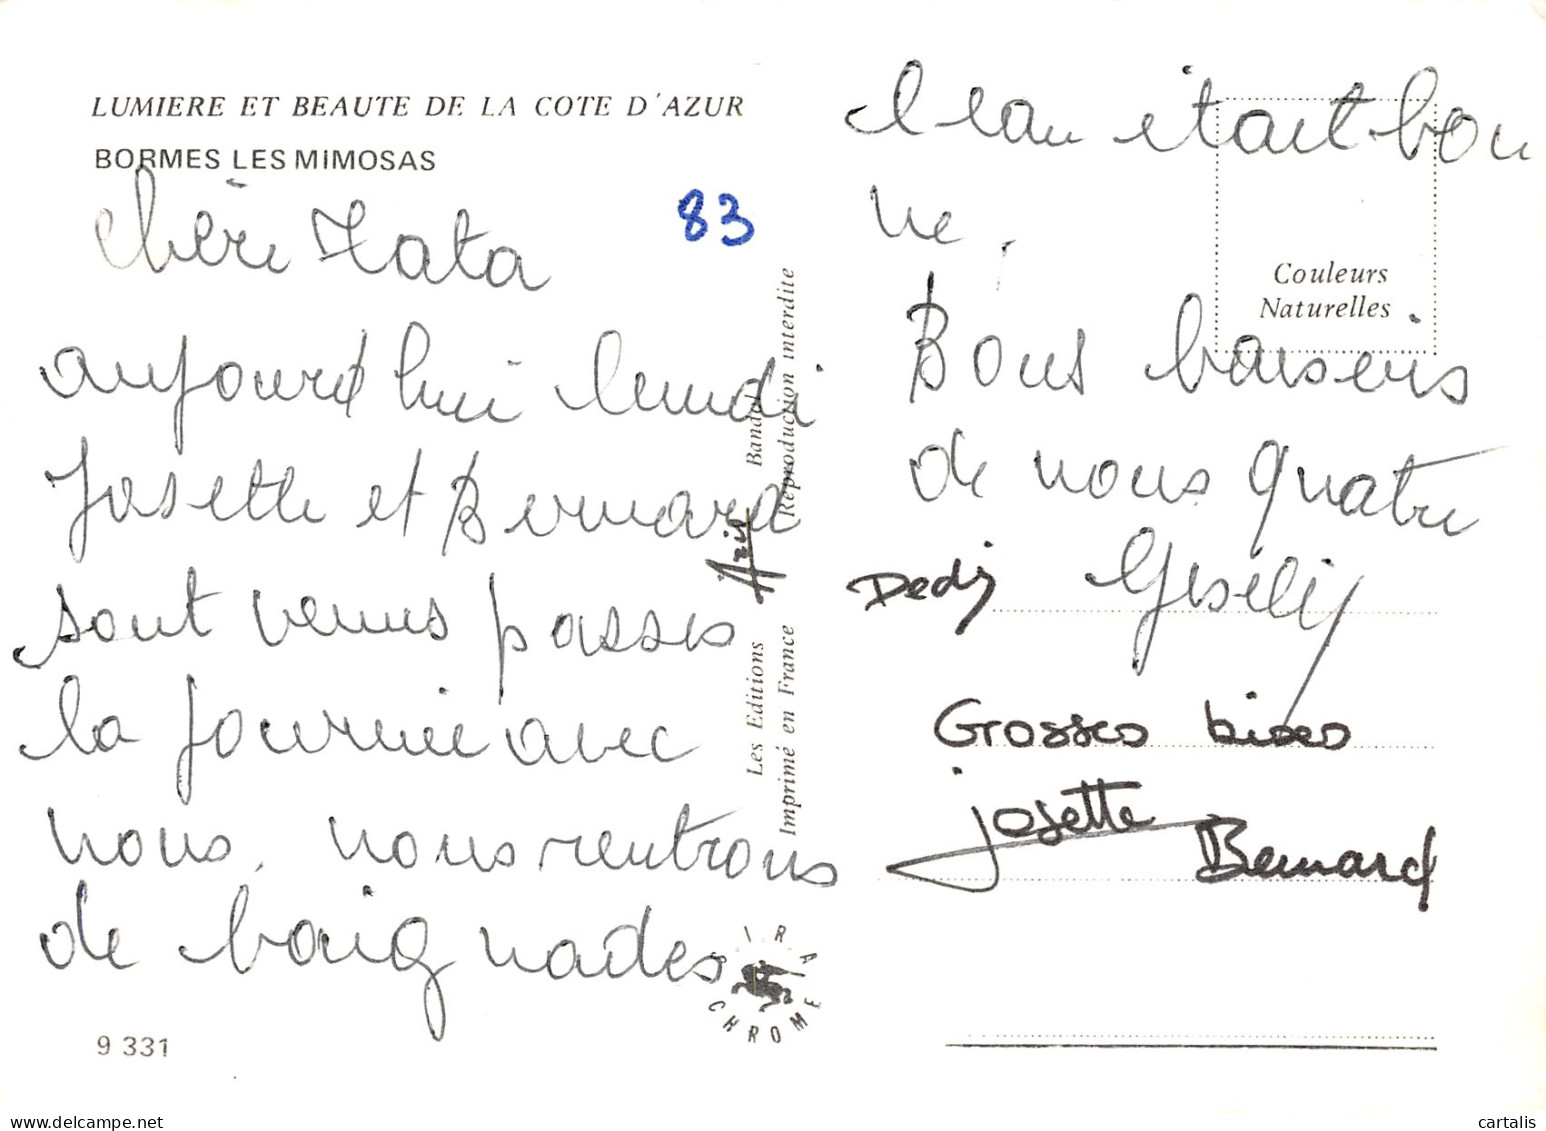 LUMIERE ET BEAUTE DE LA COTE D'AZUR
BORMES LES MIMOSAS
83
Chère Tata
aujourd'hui lundi
Josette et Bernard
sont venus passer
la journée avec
nous, nous rentrons
de baignades
9 331
Les Editions Aris Bandol
Imprimé en France Reproduction interdite
MIRACHROME
l'eau était bon
ne.
Couleurs
Naturelles
Bons baisers
de nous quatre
Dedj Gisèle
Grosses bises
josette
Bernard
cartalis - delcampe.net